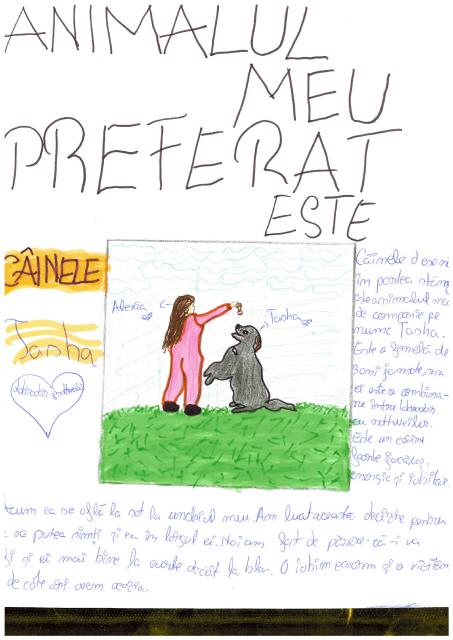 ANIMALUL
MEU
PREFERAT
ESTE
CÂINELE
Tasha
Alexia
Tasha
Câinele desenat
în partea stângă
este animalul meu
de companie pe
nume Tasha.
Este o femelă de
ani jumate, iar
ei este o combina-
ție între labrador
cu rottweiler.
Este un câine
foarte jucăuș,
energic și iubitor.
acum ea se află la sat la unchiul meu. Am luat această decizie pentru
se putea simți și ea în largul ei. Noi am fost de părere că-i va
fi și ei mai bine la curte decât la bloc. O iubim enorm și o vizităm
de câte ori avem ocazia.